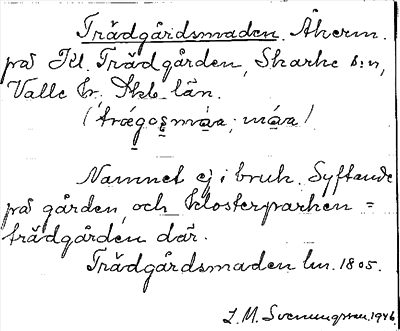 Trädgårdsmaden. Åkerm.
på Kl. Trädgården, Skarke s:n,
Valle hr. Skb. län.
Namnet ej i bruk. Syftande
på gården, och klosterparken =
trädgården där.
Trädgårdsmaden lm. 1805.
L. M. Svenungsson. 1946